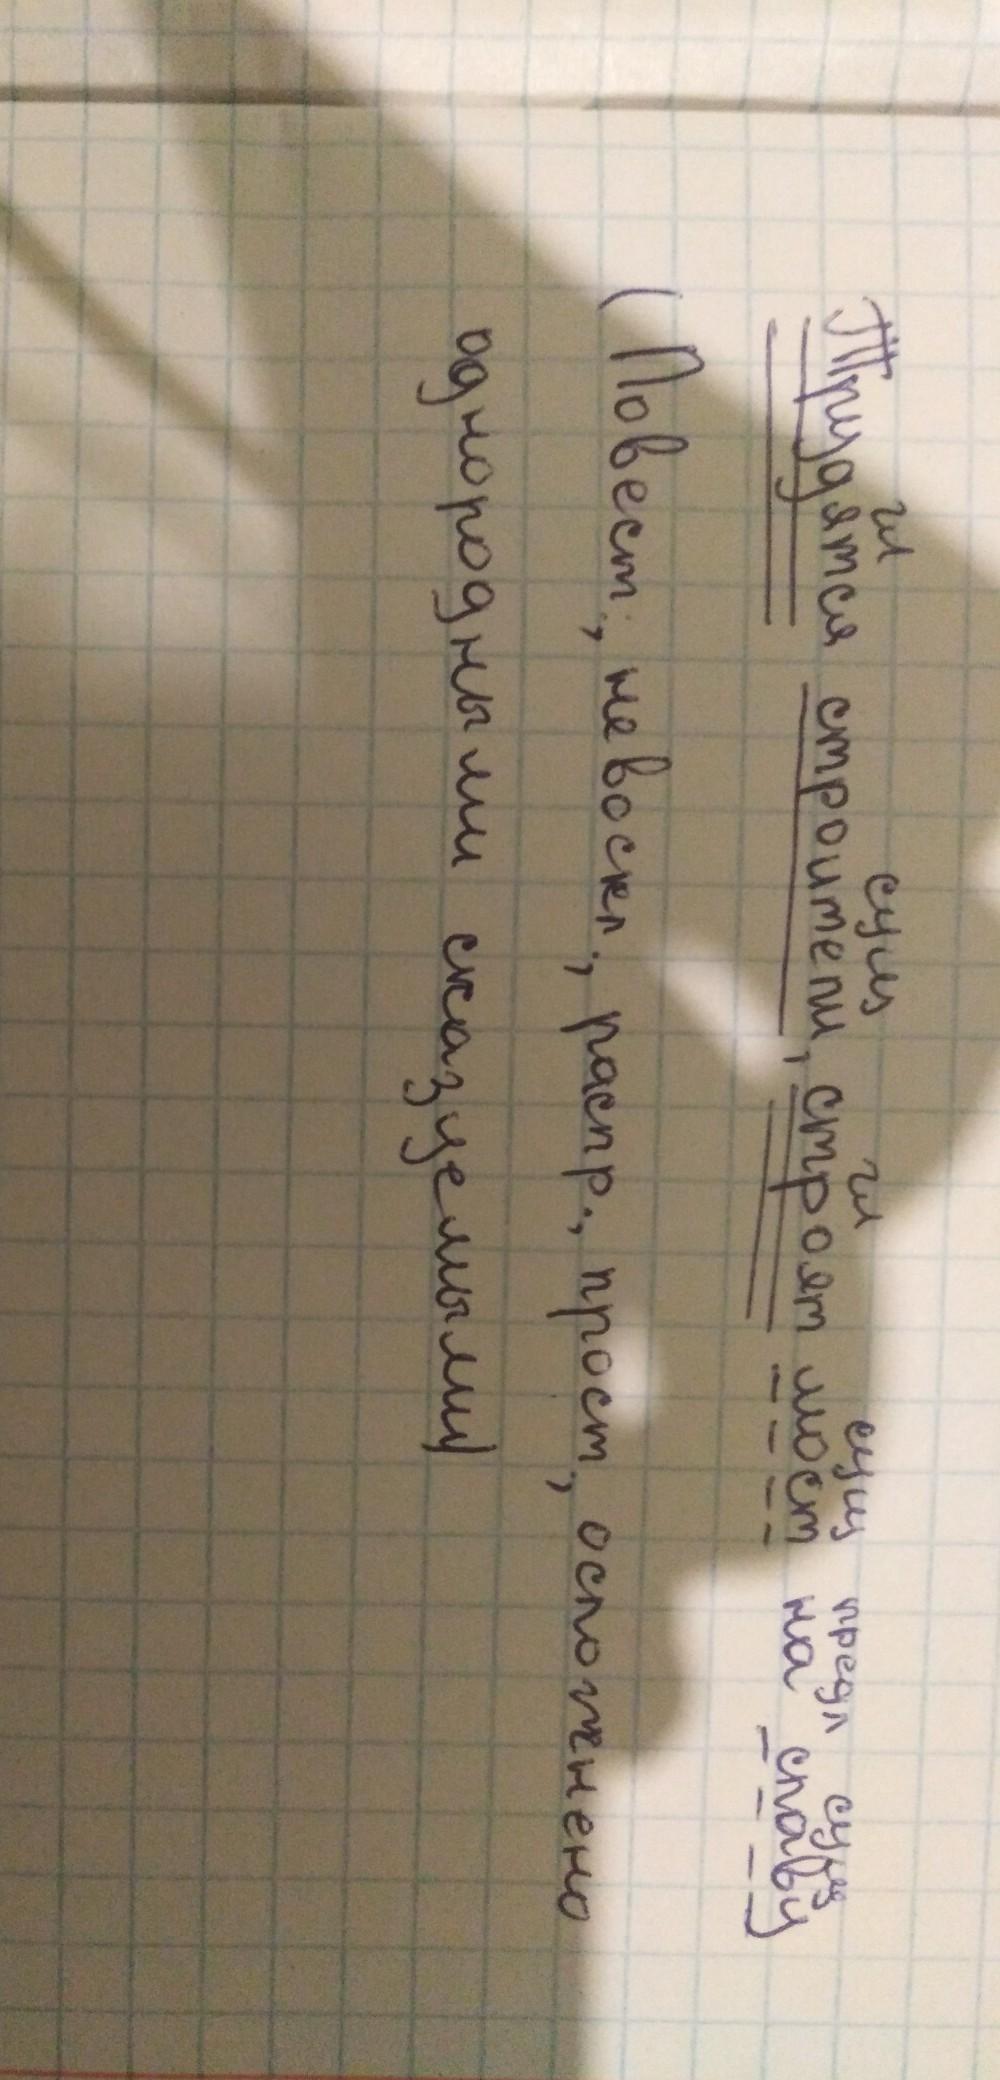 гл сущ гл сущ предл сущ
Трудятся строители, строят мост на славу
( Повест., невоскл., распр., прост, осложнено
однородными сказуемыми)